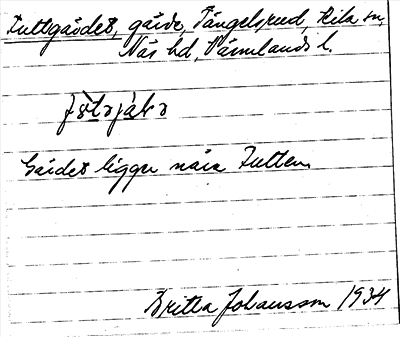 Tuttgärdet, gärde, Tängelsrud, Kila sn,
Näs hd, Värmlands l.
Gärdet ligger nära Tutten.
Britta Johansson 1934